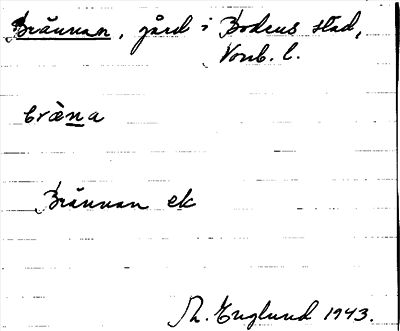 Brännan, gård i Bodens stad,
Norrb. l.
bræ̀na
Brännan ek
Th. Englund 1943.